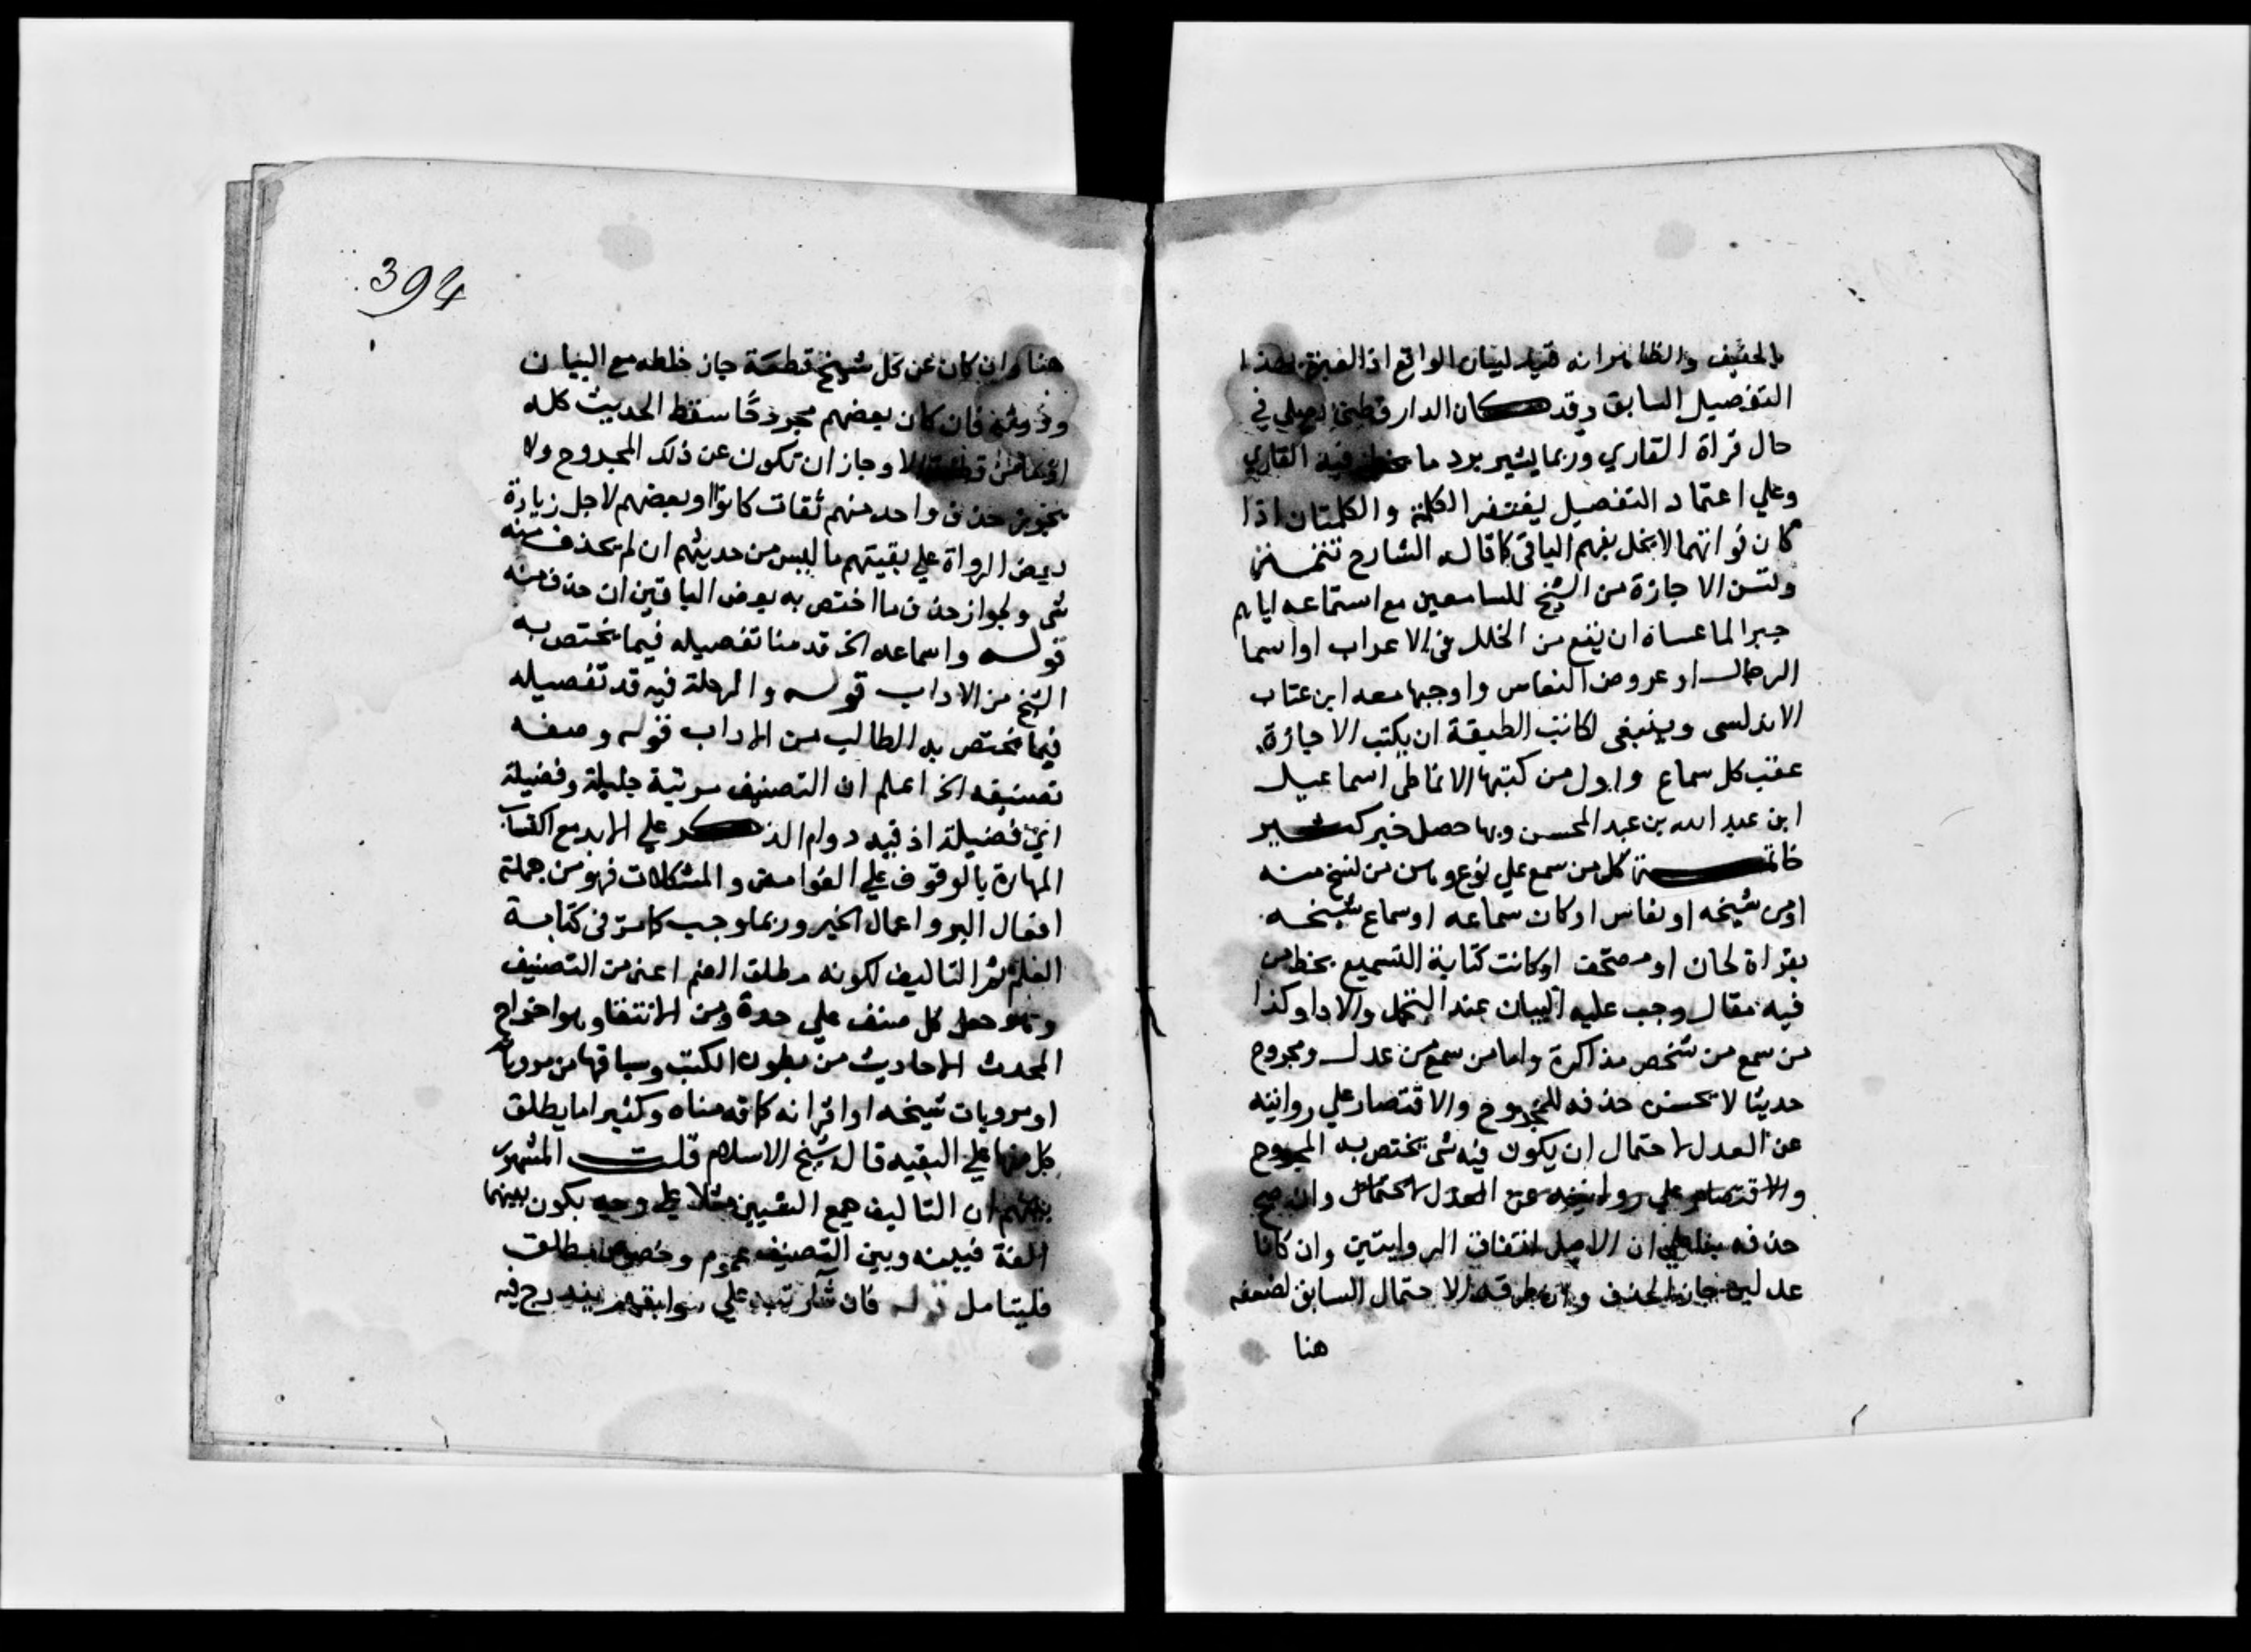 والظاهر انه قيد لبيان الواقع اذ العبرة بهذا
التفصيل السابق وقد كان الدارقطني يصلي في
حال قراة القاري وربما يشير برد ما يخطئ فيه القاري
وعلي اعتماد التفصيل يغتفر الكلمة والكلمتان اذا
كان فواتهما لا يخل بفهم الباقي كما قاله الشارح تتمة
ولتسن الاجازة من الشيخ للسامعين مع استماعه اياهم
جبرا لما عساه ان يقع من الخلل في الاعراب او اسما
الرجال او عروض النعاس واوجبها معه ابن عتاب
الاندلسي وينبغي لكاتب الطبقة ان يكتب الاجازة
عقب كل سماع واول من كتبها الانماطي اسماعيل
ابن عبد الله بن عبد المحسن وبها حصل خير كثير
خاتمة كل من سمع علي نوع وهن من نسخ منه
او من شيخه او نعاس او كان سماعه او سماع شيخه
بقراة لحان او مصحف او كانت كتابة التسميع بخط من
فيه مقال وجب عليه البيان عند التحمل والادا وكذا
من سمع من شخص مذاكرة واما من سمع من عدل ومجروح
حديثا لا يحسن حذفه للمجروح والاقتصار علي روايته
عن العدل لاحتمال ان يكون فيه شي يختص به المجروح
والاقتصار علي روايته عن العدل لاحتمال وان صح
حذفه بنا علي ان الاصل اتفاق الروايتين وان كانا
عدلين جاز الحذف وان طرقه الاحتمال السابق لضعفه
هنا
394
هنا وان كان عن كل شيخ قطعة جاز خلطه مع البيان
فان كان بعضهم مجروحا سقط الحديث كله
الا وجاز ان تكون عن ذلك المجروح ولا
يجوز حذف واحد منهم ثقات كانوا او بعضهم لاجل زيادة
بعض الرواة علي بقيتهم ما ليس من حديثهم ان لم يحذف منه
شي ولجواز حذف ما اختص به بعض الباقين ان حذف منه
قوله واسماعه الخ قدمنا تفصيله فيما يختص به
الشيخ من الاداب قوله والرحلة فيه قد تفصيله
فيما يختص به الطالب من الاداب قوله وصفه
تصنيفه الخ اعلم ان التصنيف مرتبة جليلة وفضيلة
اي فضيلة اذ فيه دوام الذكر علي الابد مع اكتساب
المهارة بالوقوف علي الغوامض والمشكلات فهو من جملة
افعال البر واعمال الخير وربما وجب كما مر في كتابة
العلم ثم التاليف لكونه مطلق الضم اعم من التصنيف
وهو جعل كل صنف علي حدة ومن الانتقا وهو اخراج
المحدث الاحاديث من بطون الكتب وسياقها من مروياته
او مرويات شيخه او اقرانه كما قدمناه وكثيرا ما يطلق
كل منها علي البقيه قاله شيخ الاسلام قلت المشهور
بينهم ان التاليف جمع الشيين مثلا علي وجه يكون بينهما
الفة فبينه وبين التصنيف عموم وخصوص مطلق
فليتامل قوله فان شا رتبه علي سوابقهم يندرج فيه